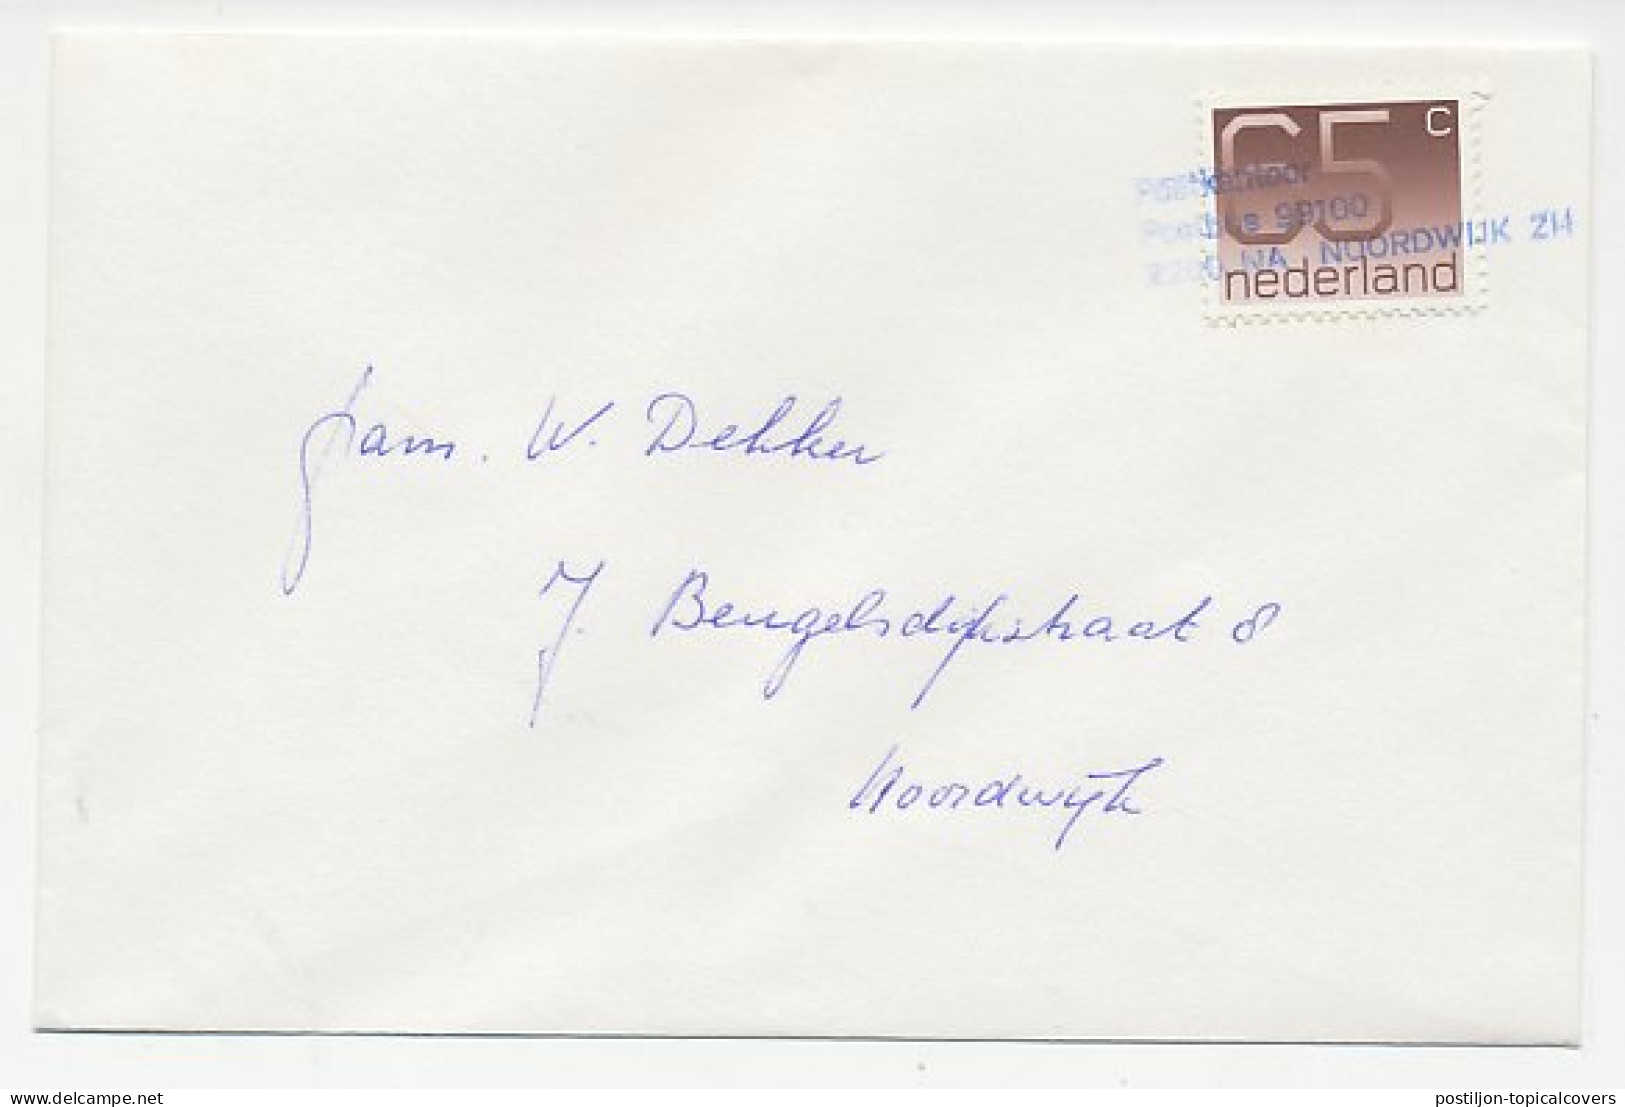 65 c
nederland
Postkantoor
Postbus 99100
2200 NA NOORDWIJK ZH
Fam. W. Dekker
J. Bengelsdijkstraat 8
Noordwijk
delcampe.net
postiljon-topicalcovers